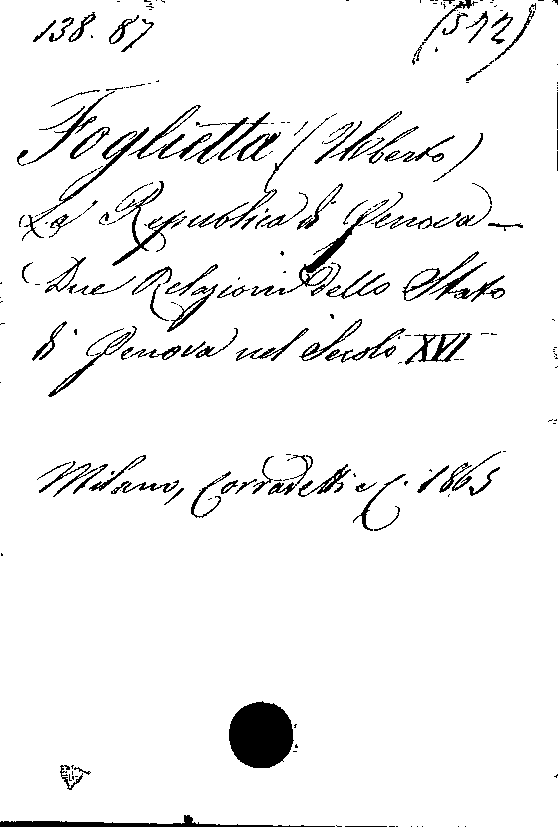 138. 87 (572)
Foglietta (Uberto)
La Republica di Genova —
Due Relazioni dello Stato
di Genova nel Secolo XVI
Milano, Corradetti e C. 1865